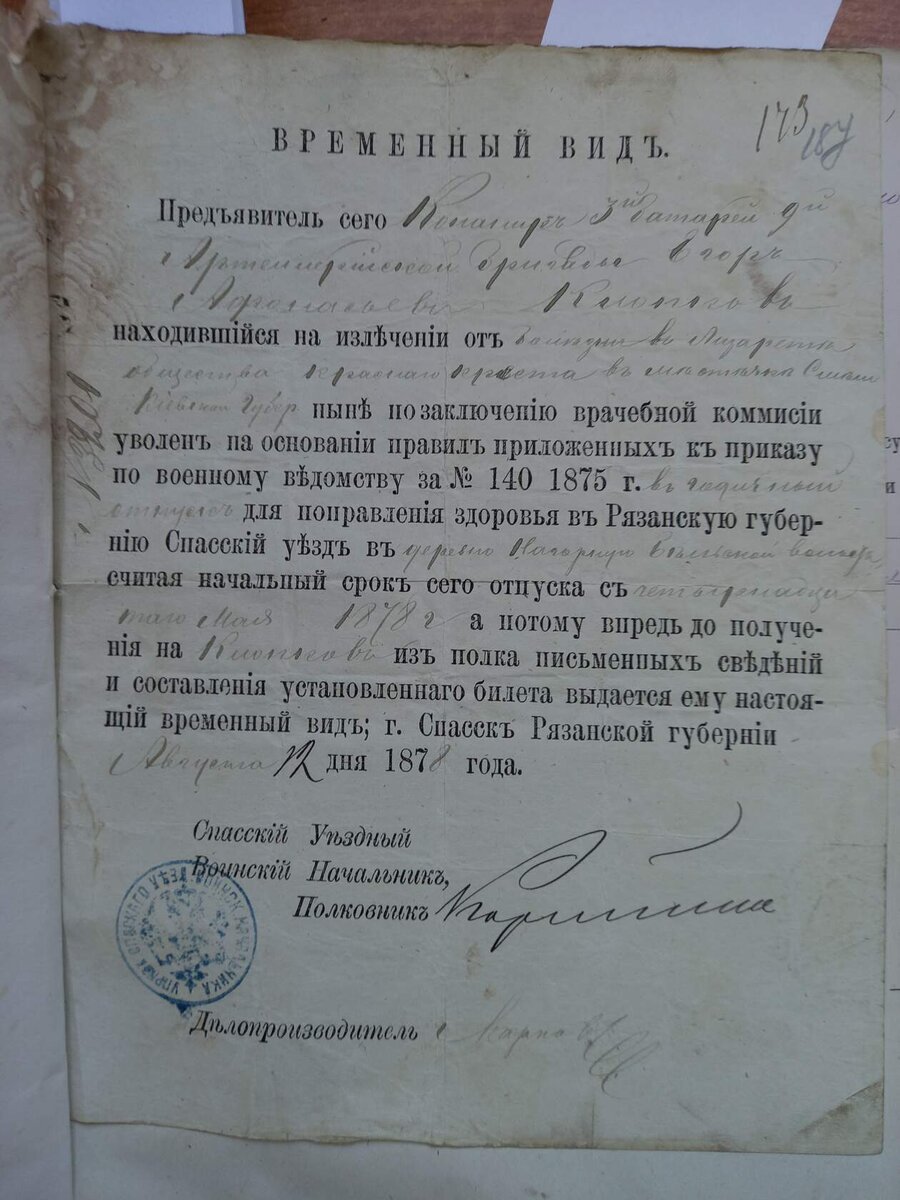 173
187
ВРЕМЕННЫЙ ВИДЪ.
Предъявитель сего Канониръ 3й батареи 9й
Артиллерійской бригады Егоръ
Афонасьевъ
находившійся на излѣченіи отъ болезни въ Лазаретѣ
общества краснаго креста въ мѣстѣчкѣ
Кіевской Губер нынѣ по заключенію врачебной коммисіи
уволенъ на основаніи правилъ приложенныхъ къ приказу
по военному вѣдомству за № 140 1875 г. въ годичный
отпускъ для поправленія здоровья въ Рязанскую губер-
нію Спасскій уѣздъ въ деревню волости,
считая начальный срокъ сего отпуска съ четырнадца
таго Мая 1878 г а потому впредь до получе-
нія на изъ полка письменныхъ свѣдѣній
и составленія установленнаго билета выдается ему настоя-
щій временный видъ; г. Спасскъ Рязанской губерніи
Августа 12 дня 1878 года.
Спасскій Уѣздный
Воинскій Начальникъ,
Полковникъ
Дѣлопроизводитель Марковъ
№ 3201
УПРАВ. СПАССКАГО УѢЗД. ВОИНСК. НАЧАЛЬНИКА